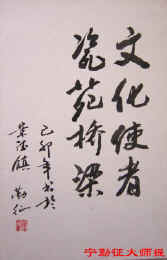 文化使者
瓷苑桥梁
己卯年书於
景德镇 勤征
宁勤征大师振